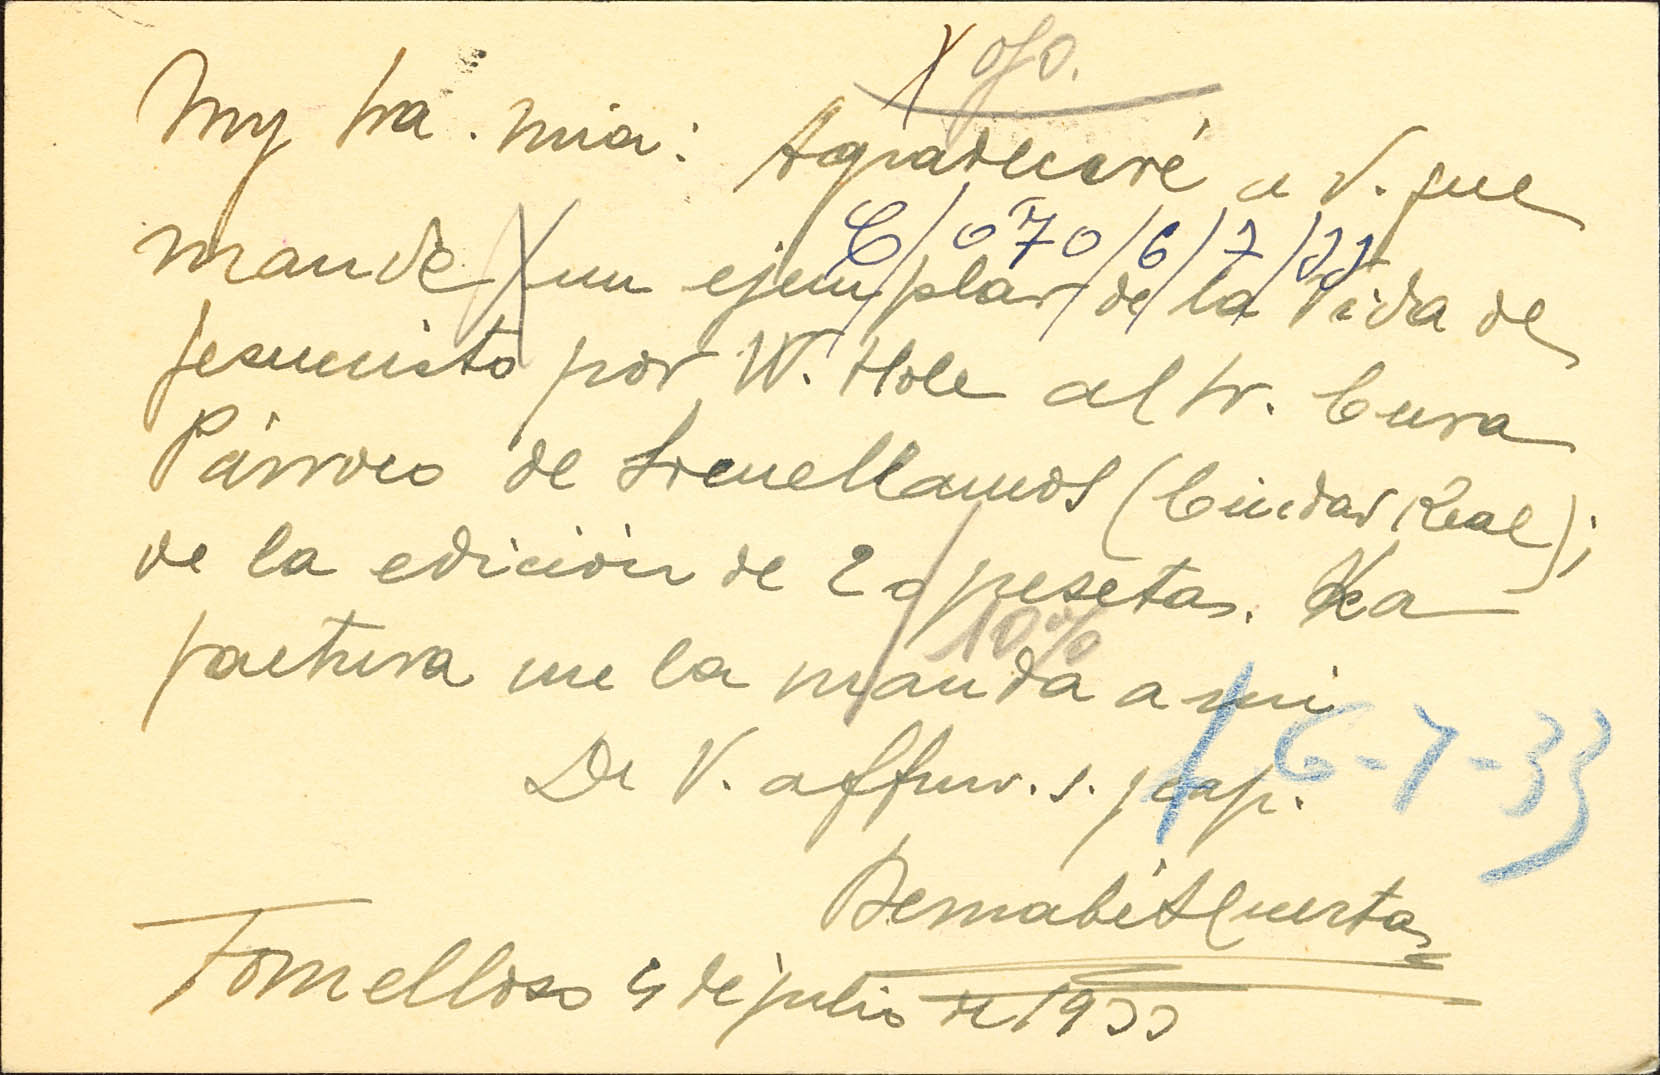 ojo.
My Sra. mia: Agradeceré a V. que
C/070/6/7/33
mande un ejemplar de la Vida de
Jesucristo por W. Hole al Sr. Cura
Párroco de Socuellamos (Ciudad Real);
de la edición de 20 pesetas. La
10%
factura me la manda a mi
6-7-33
De V. affmo. s. y cap.
Bernabé Huertas
Tomelloso 4 de julio de 1933